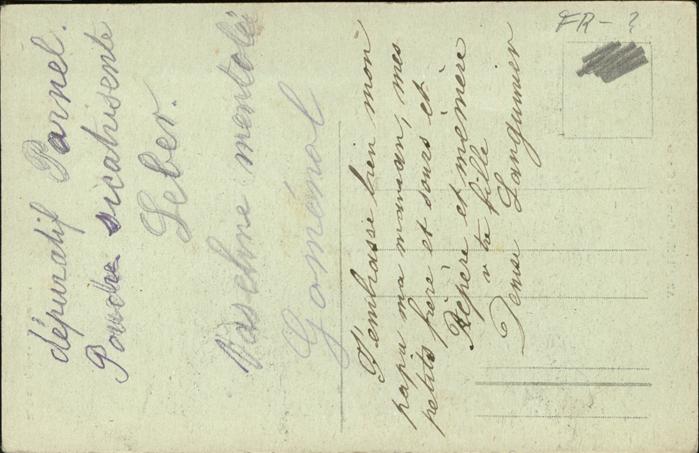 dépuratif Parnel.
Poudre sicatrisente
Leber.
Vaseline mentolé
Goménol
J'embrasse bien mon
papa ma maman, mes
petits frère et sœurs et
Pépère et mémère
v tre fille
Denise Languinier
FR-?